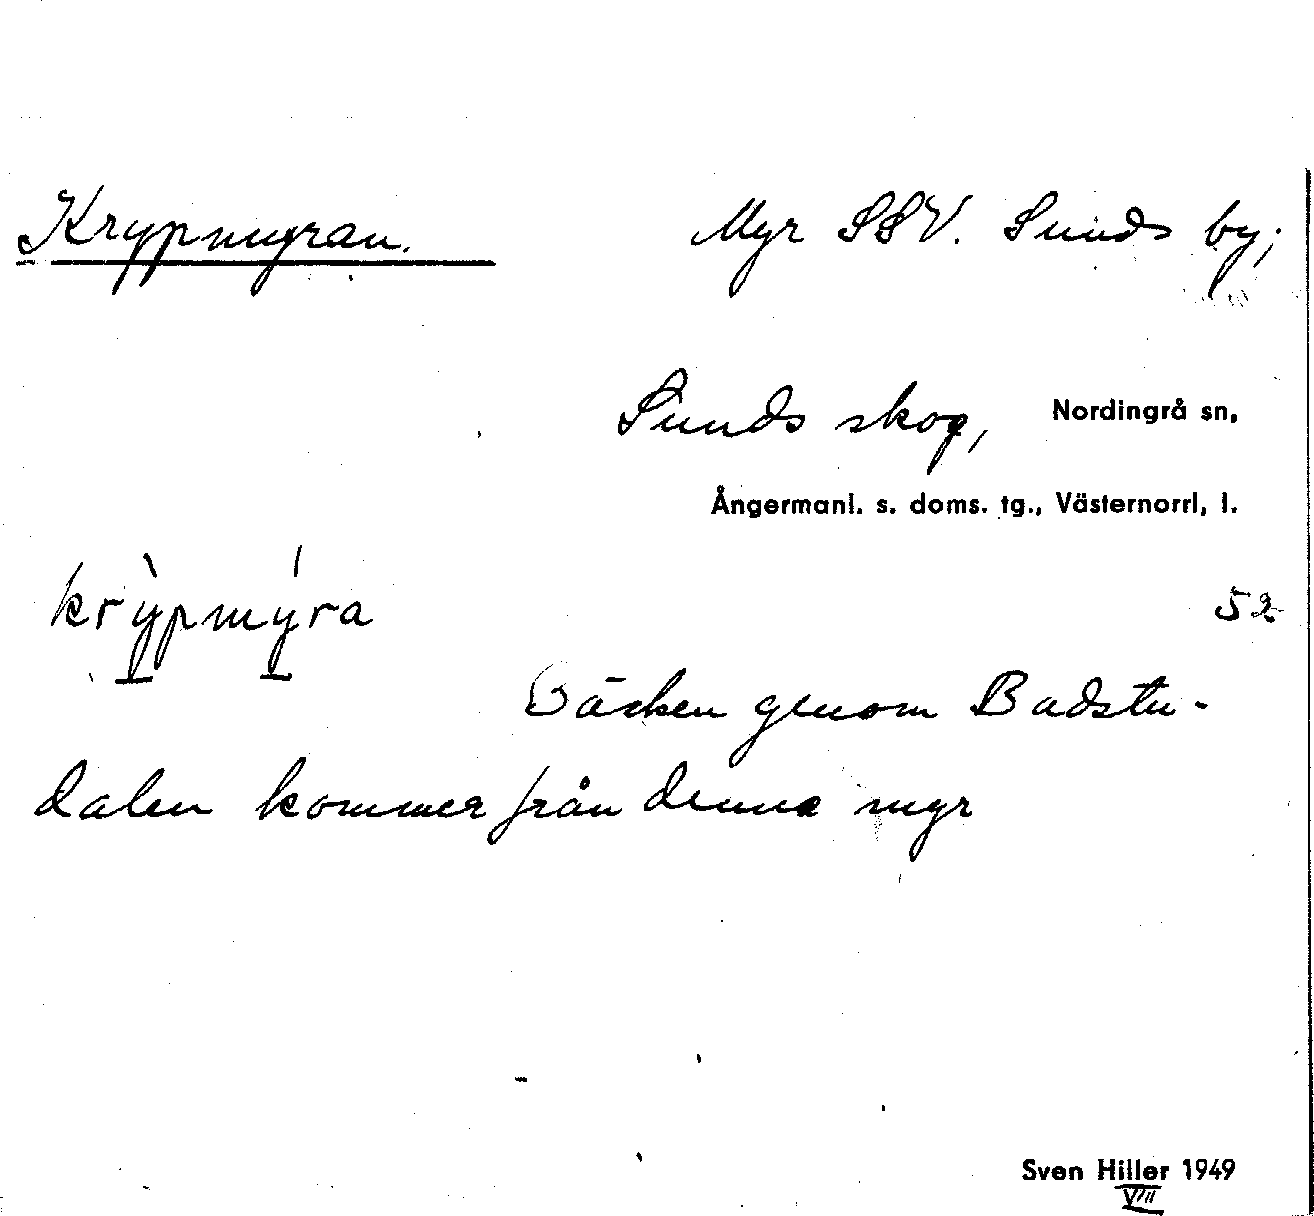 Krypmyran. Myr SSV. Sunds by;
Sunds skog, Nordingrå sn,
Ångermanl. s. doms. tg., Västernorrl, l.
krỳpmýra 52
Bäcken genom Badstu-
dalen kommer från denna myr
Sven Hiller 1949
VIII